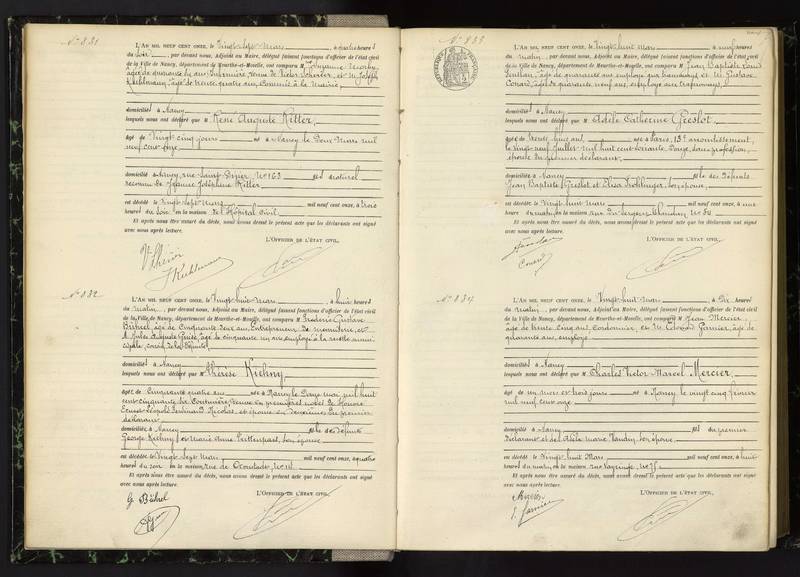 N° 831
L'AN MIL NEUF CENT ONZE, le Vingt Sept Mars, à quatre heures
du soir, par devant nous, Adjoint au Maire, délégué faisant fonctions d'officier de l'état civil
de la Ville de Nancy, département de Meurthe-et-Moselle, ont comparu M
âgée de quarante
Kuhlmann, âgé de trente quatre ans, Commis à la Mairie,
domiciliés à Nancy
lesquels nous ont déclaré que M René Auguste Ritter
âgé de Vingt cinq jours né à Nancy le Deux Mars mil
neuf cent onze
domicilié à Nancy, rue N° 163 fils naturel
reconnu de Jeanne Joséphine Ritter
est décédé le Vingt sept Mars mil neuf cent onze, à trois
heures du soir en la maison de l'Hôpital Civil
Et après nous être assuré du décès, nous avons dressé le présent acte que les déclarants ont signé
avec nous après lecture.
L'OFFICIER DE L'ÉTAT CIVIL,
Kuhlmann
N° 832
L'AN MIL NEUF CENT ONZE, le Vingt huit Mars, à huit heures
du matin, par devant nous, Adjoint au Maire, délégué faisant fonctions d'officier de l'état civil
de la Ville de Nancy, département de Meurthe-et-Moselle, ont comparu M Frédéric Gustave
Bührel, âgé de Cinquante deux ans, Entrepreneur de menuiserie, et
M. Jules Auguste âgé de cinquante un ans employé à la recette muni
cipale,
domiciliés à Nancy
lesquels nous ont déclaré que M Thérèse Kiehny
âgée de Cinquante quatre ans née à Nancy le Mai mil huit
cent cinquante Couturière Veuve en premières noces de Honoré
Ernest Léopold Ferdinand Nicolas, et épouse en deuxièmes du premier
déclarant
domiciliée à Nancy fille des défunts
George Kiehny et Marie Anne son épouse
est décédée le Vingt Sept Mars mil neuf cent onze, à quatre
heures du soir en la maison, rue de N°
Et après nous être assuré du décès, nous avons dressé le présent acte que les déclarants ont signé
avec nous après lecture.
L'OFFICIER DE L'ÉTAT CIVIL,
G Bührel
N° 833
L'AN MIL NEUF CENT ONZE, le Vingt huit Mars, à neuf heures
du matin, par devant nous, Adjoint au Maire, délégué faisant fonctions d'officier de l'état civil
de la Ville de Nancy, département de Meurthe-et-Moselle, ont comparu M Jean Baptiste
âgé de quarante ans employé aux tramways et M. Gustave
Conard, âgé de quarante neuf ans, employé aux tramways,
domiciliés à Nancy
lesquels nous ont déclaré que M Adèle Catherine Greslot
âgée de trente huit ans née à Paris, 13e arrondissement,
le Vingt neuf Juillet mil huit cent soixante douze, sans profession,
épouse du premier déclarant
domiciliée à Nancy fille des Défunts
Jean Baptiste Greslot et Elisa son épouse,
est décédée le Vingt huit Mars mil neuf cent onze, à une
heure du matin, en la maison, rue du Sergent Blandan N°
Et après nous être assuré du décès, nous avons dressé le présent acte que les déclarants ont signé
avec nous après lecture.
L'OFFICIER DE L'ÉTAT CIVIL,
Conard
N° 834
L'AN MIL NEUF CENT ONZE, le Vingt huit Mars, à Dix heures
du matin, par devant nous, Adjoint au Maire, délégué faisant fonctions d'officier de l'état civil
de la Ville de Nancy, département de Meurthe-et-Moselle, ont comparu M Jean Mercier,
âgé de trente cinq ans, cordonnier, et M. Edouard Garnier, âgé de
quarante ans, employé
domiciliés à Nancy
lesquels nous ont déclaré que M Charles Victor Marcel Mercier,
âgé de un mois et trois jours né à Nancy, le vingt cinq février
mil neuf cent onze
domicilié à Nancy fils du premier
déclarant et de Adèle Marie son épouse
est décédé le Vingt huit Mars mil neuf cent onze, à huit
heures du matin, en la maison, rue N°
Et après nous être assuré du décès, nous avons dressé le présent acte que les déclarants ont signé
avec nous après lecture.
L'OFFICIER DE L'ÉTAT CIVIL,
Mercier
E. Garnier